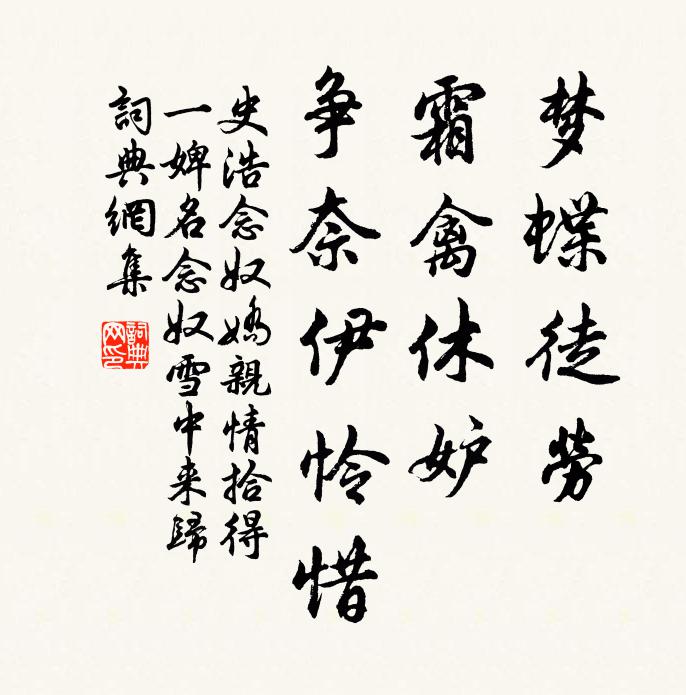 梦蝶徒劳
霜禽休妒
争奈伊怜惜
史浩念奴嬌親情拾得
一婢名念奴雪中来歸
詞典網集
詞典
网印